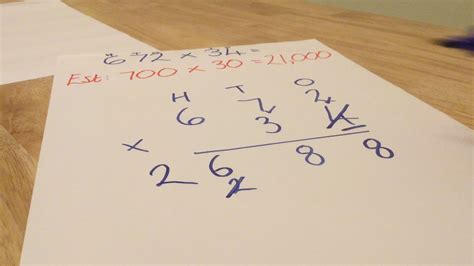 672 x 34 =
Est: 700 x 30 = 21,000
H T O
6 7 2
x 3 4
2 6 8 8
2